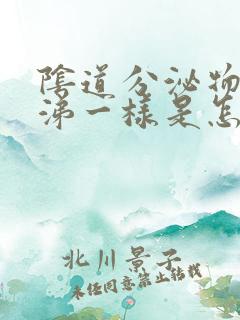 陰道分泌物
涕一樣是怎
北川景子
未經同意禁止轉載